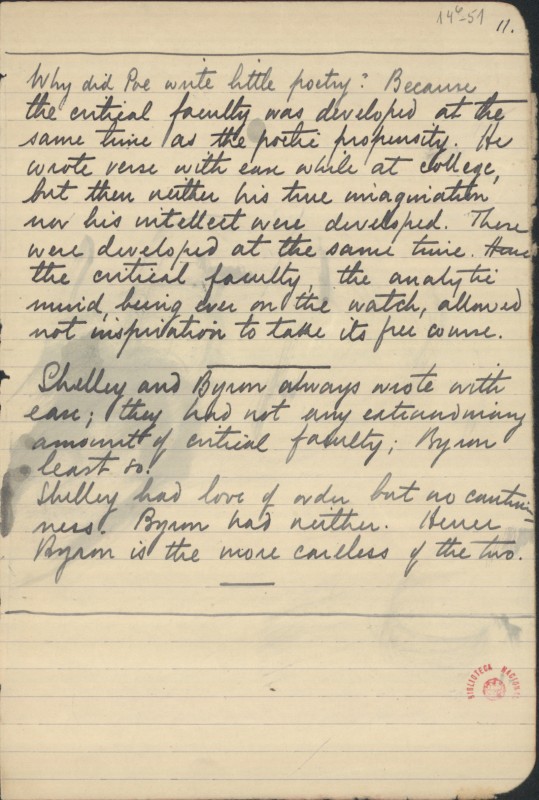 14⁶-51
11.
Why did Poe write little poetry? Because
the critical faculty was developed at the
same time as the poetic propensity. He
wrote verse with ease while at college,
but then neither his true imagination
nor his intellect were developed. These
were developed at the same time. Hence
the critical faculty, the analytic
mind, being ever on the watch, allowed
not inspiration to take its free course.
Shelley and Byron always wrote with
ease; they had not any extraordinary
amount of critical faculty; Byron
least so.
Shelley had love of order but no cautious-
ness. Byron had neither. Hence
Byron is the more careless of the two.
BIBLIOTECA NACIONAL